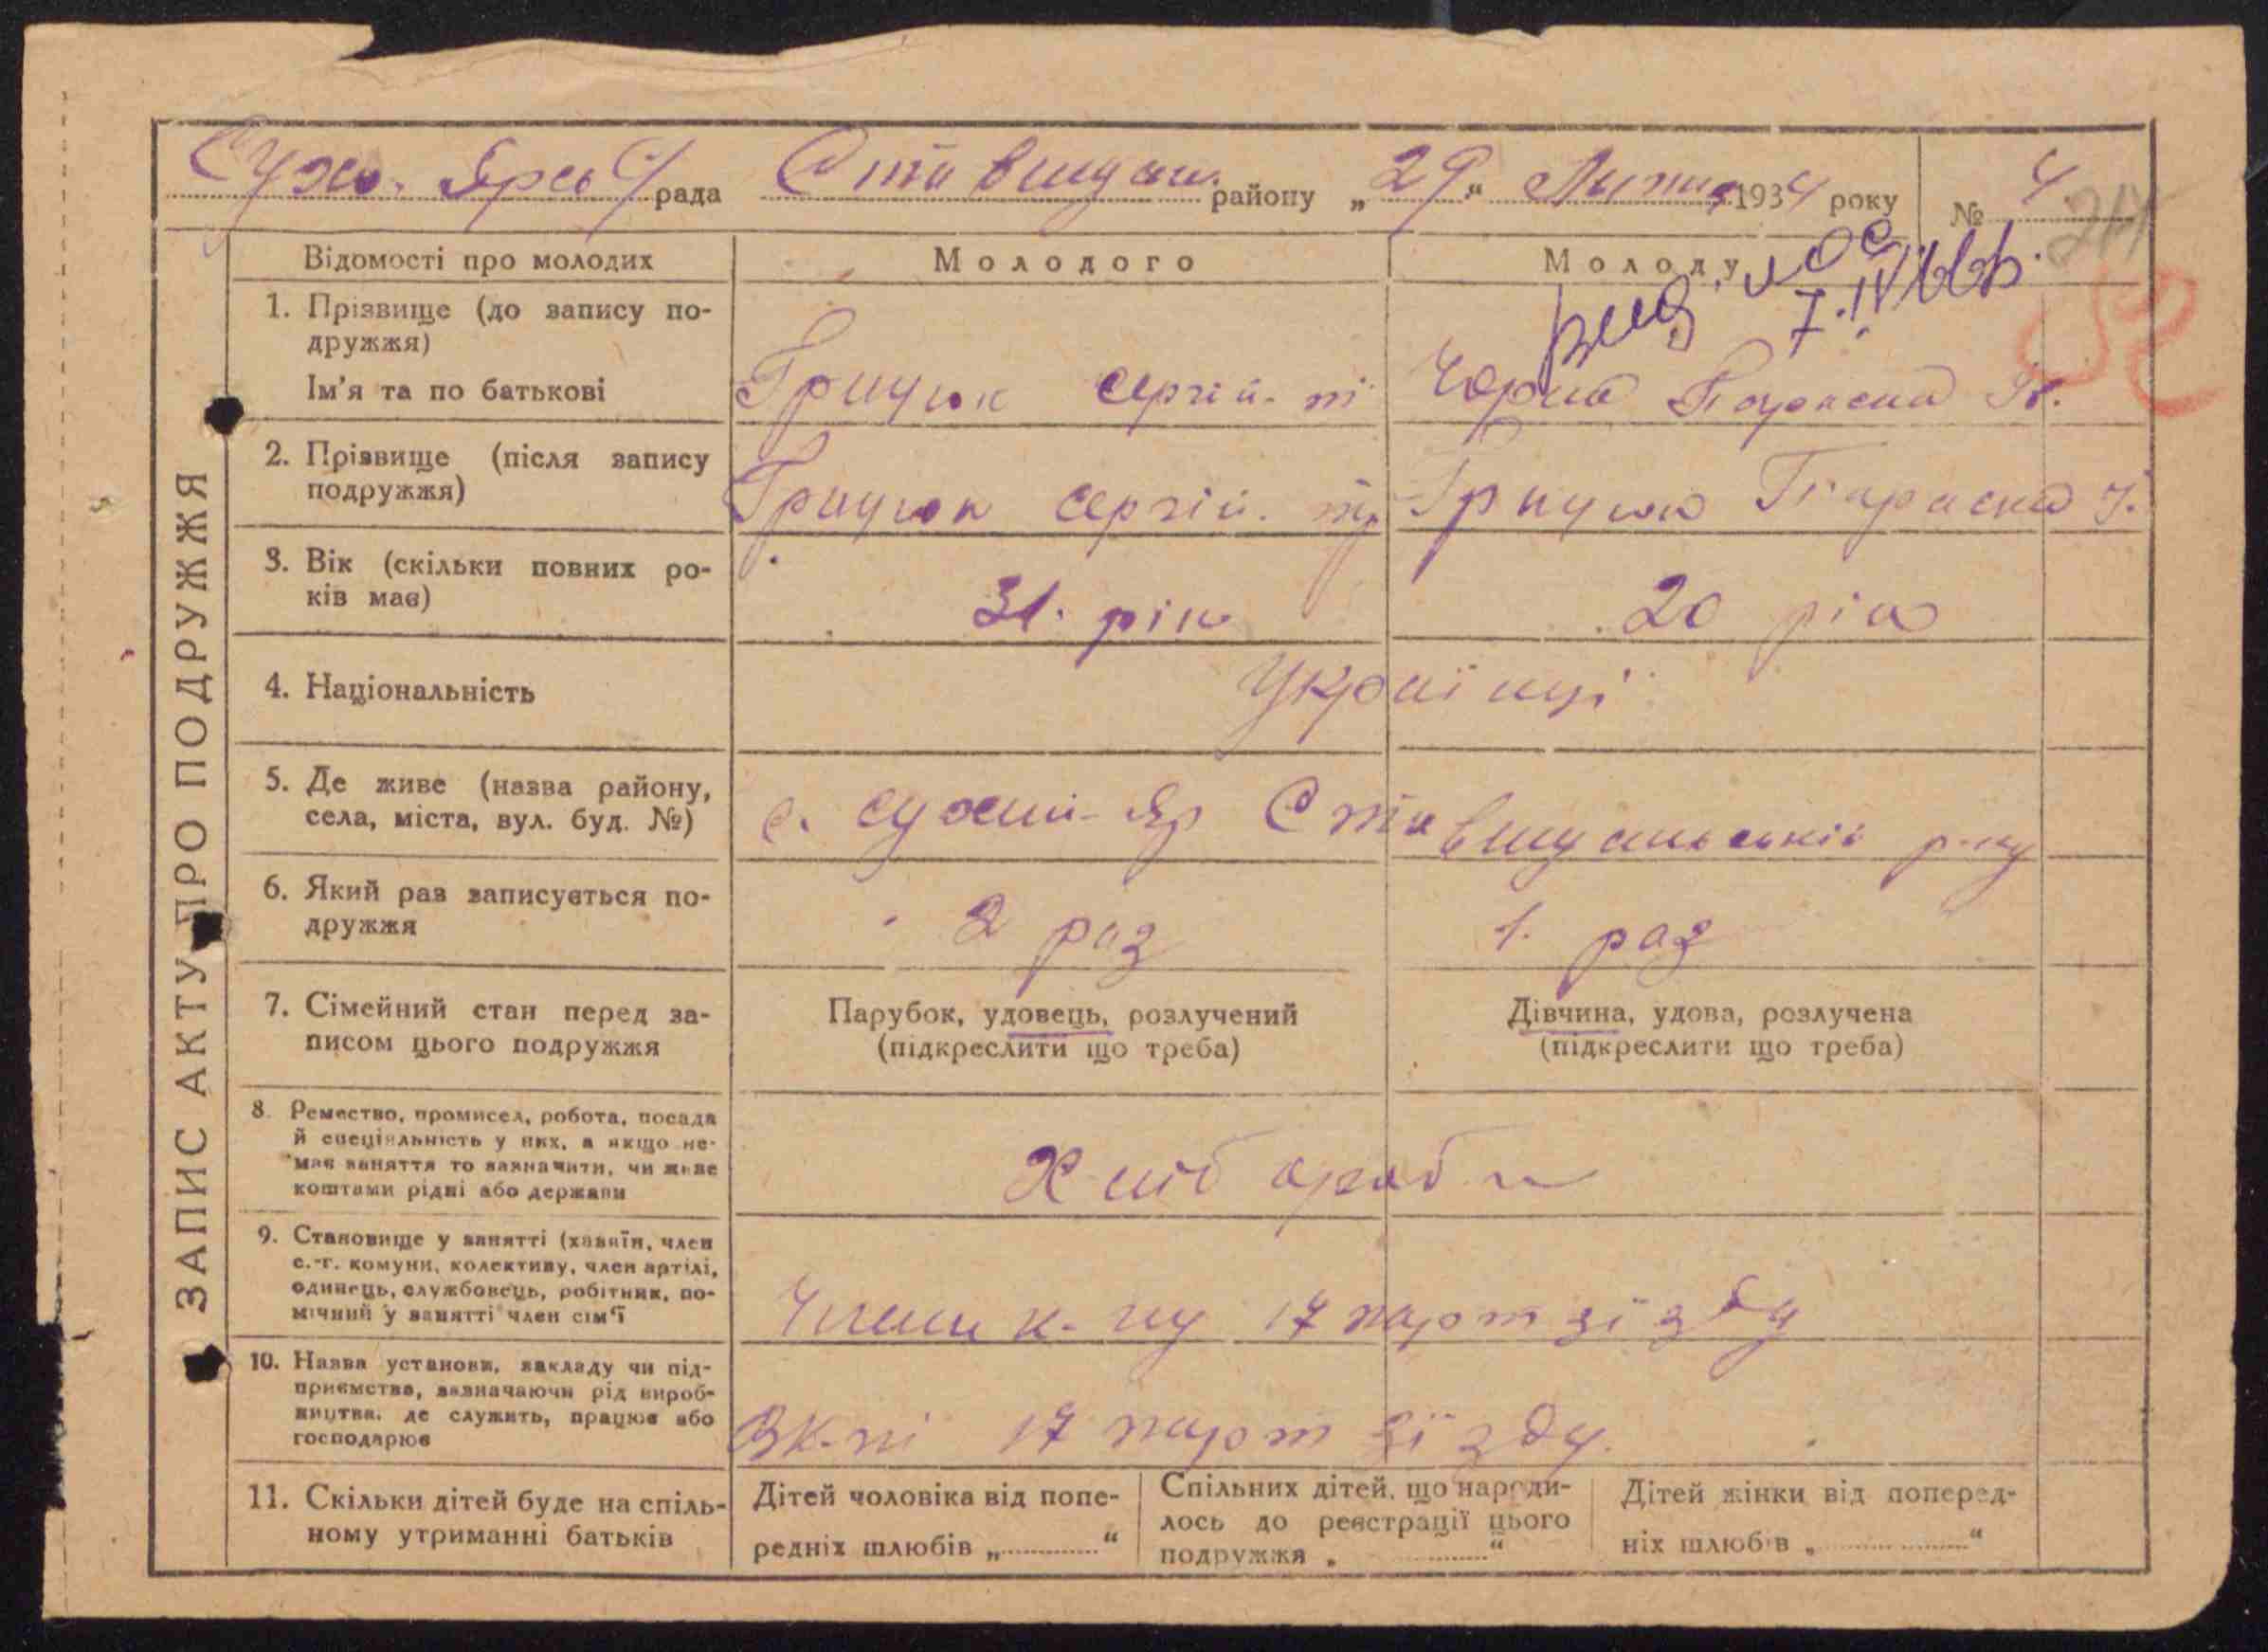 Сухо. Ярсь С/рада Ставищан. району „29“ Липня 1934 року № 4
ЗАПИС АКТУ ПРО ПОДРУЖЖЯ
Відомості про молодих Молодого Молоду
7.IV
1. Прізвище (до запису по-
дружжя)
Ім'я та по батькові
Грицюк Сергій. Чорна Параска
2. Прізвище (після запису
подружжя)
Грицюк Сергій. Грицюк Параска
3. Вік (скільки повних ро-
ків має)
31. рік 20 рік
4. Національність
Українці
5. Де живе (назва району,
села, міста, вул. буд. №)
с. Сухий-Яр Ставищанський р-ну
6. Який раз записується по-
дружжя
2 раз 1. раз
7. Сімейний стан перед за-
писом цього подружжя
Парубок, удовець, розлучений
(підкреслити що треба)
Дівчина, удова, розлучена
(підкреслити що треба)
8. Ремество, промисел, робота, посада
й спеціяльність у них, а якщо не-
має заняття то зазначити, чи живе
коштами рідні або держави
Хлібороби
9. Становище у занятті (хазяїн, член
с.-г. комуни, колективу, член артілі,
одинець, службовець, робітник, по-
мічний у занятті член сім'ї
Члени к-пу 17 парт зїзду
10. Назва установи, закладу чи під-
приємства, зазначаючи рід вироб-
ництва, де служить, працює або
господарює
В к-пі 17 парт зїзду.
11. Скільки дітей буде на спіль-
ному утриманні батьків
Дітей чоловіка від попе-
редніх шлюбів „ “
Спільних дітей, що народи-
лось до реєстрації цього
подружжя „ “
Дітей жінки від поперед-
ніх шлюбів „ “